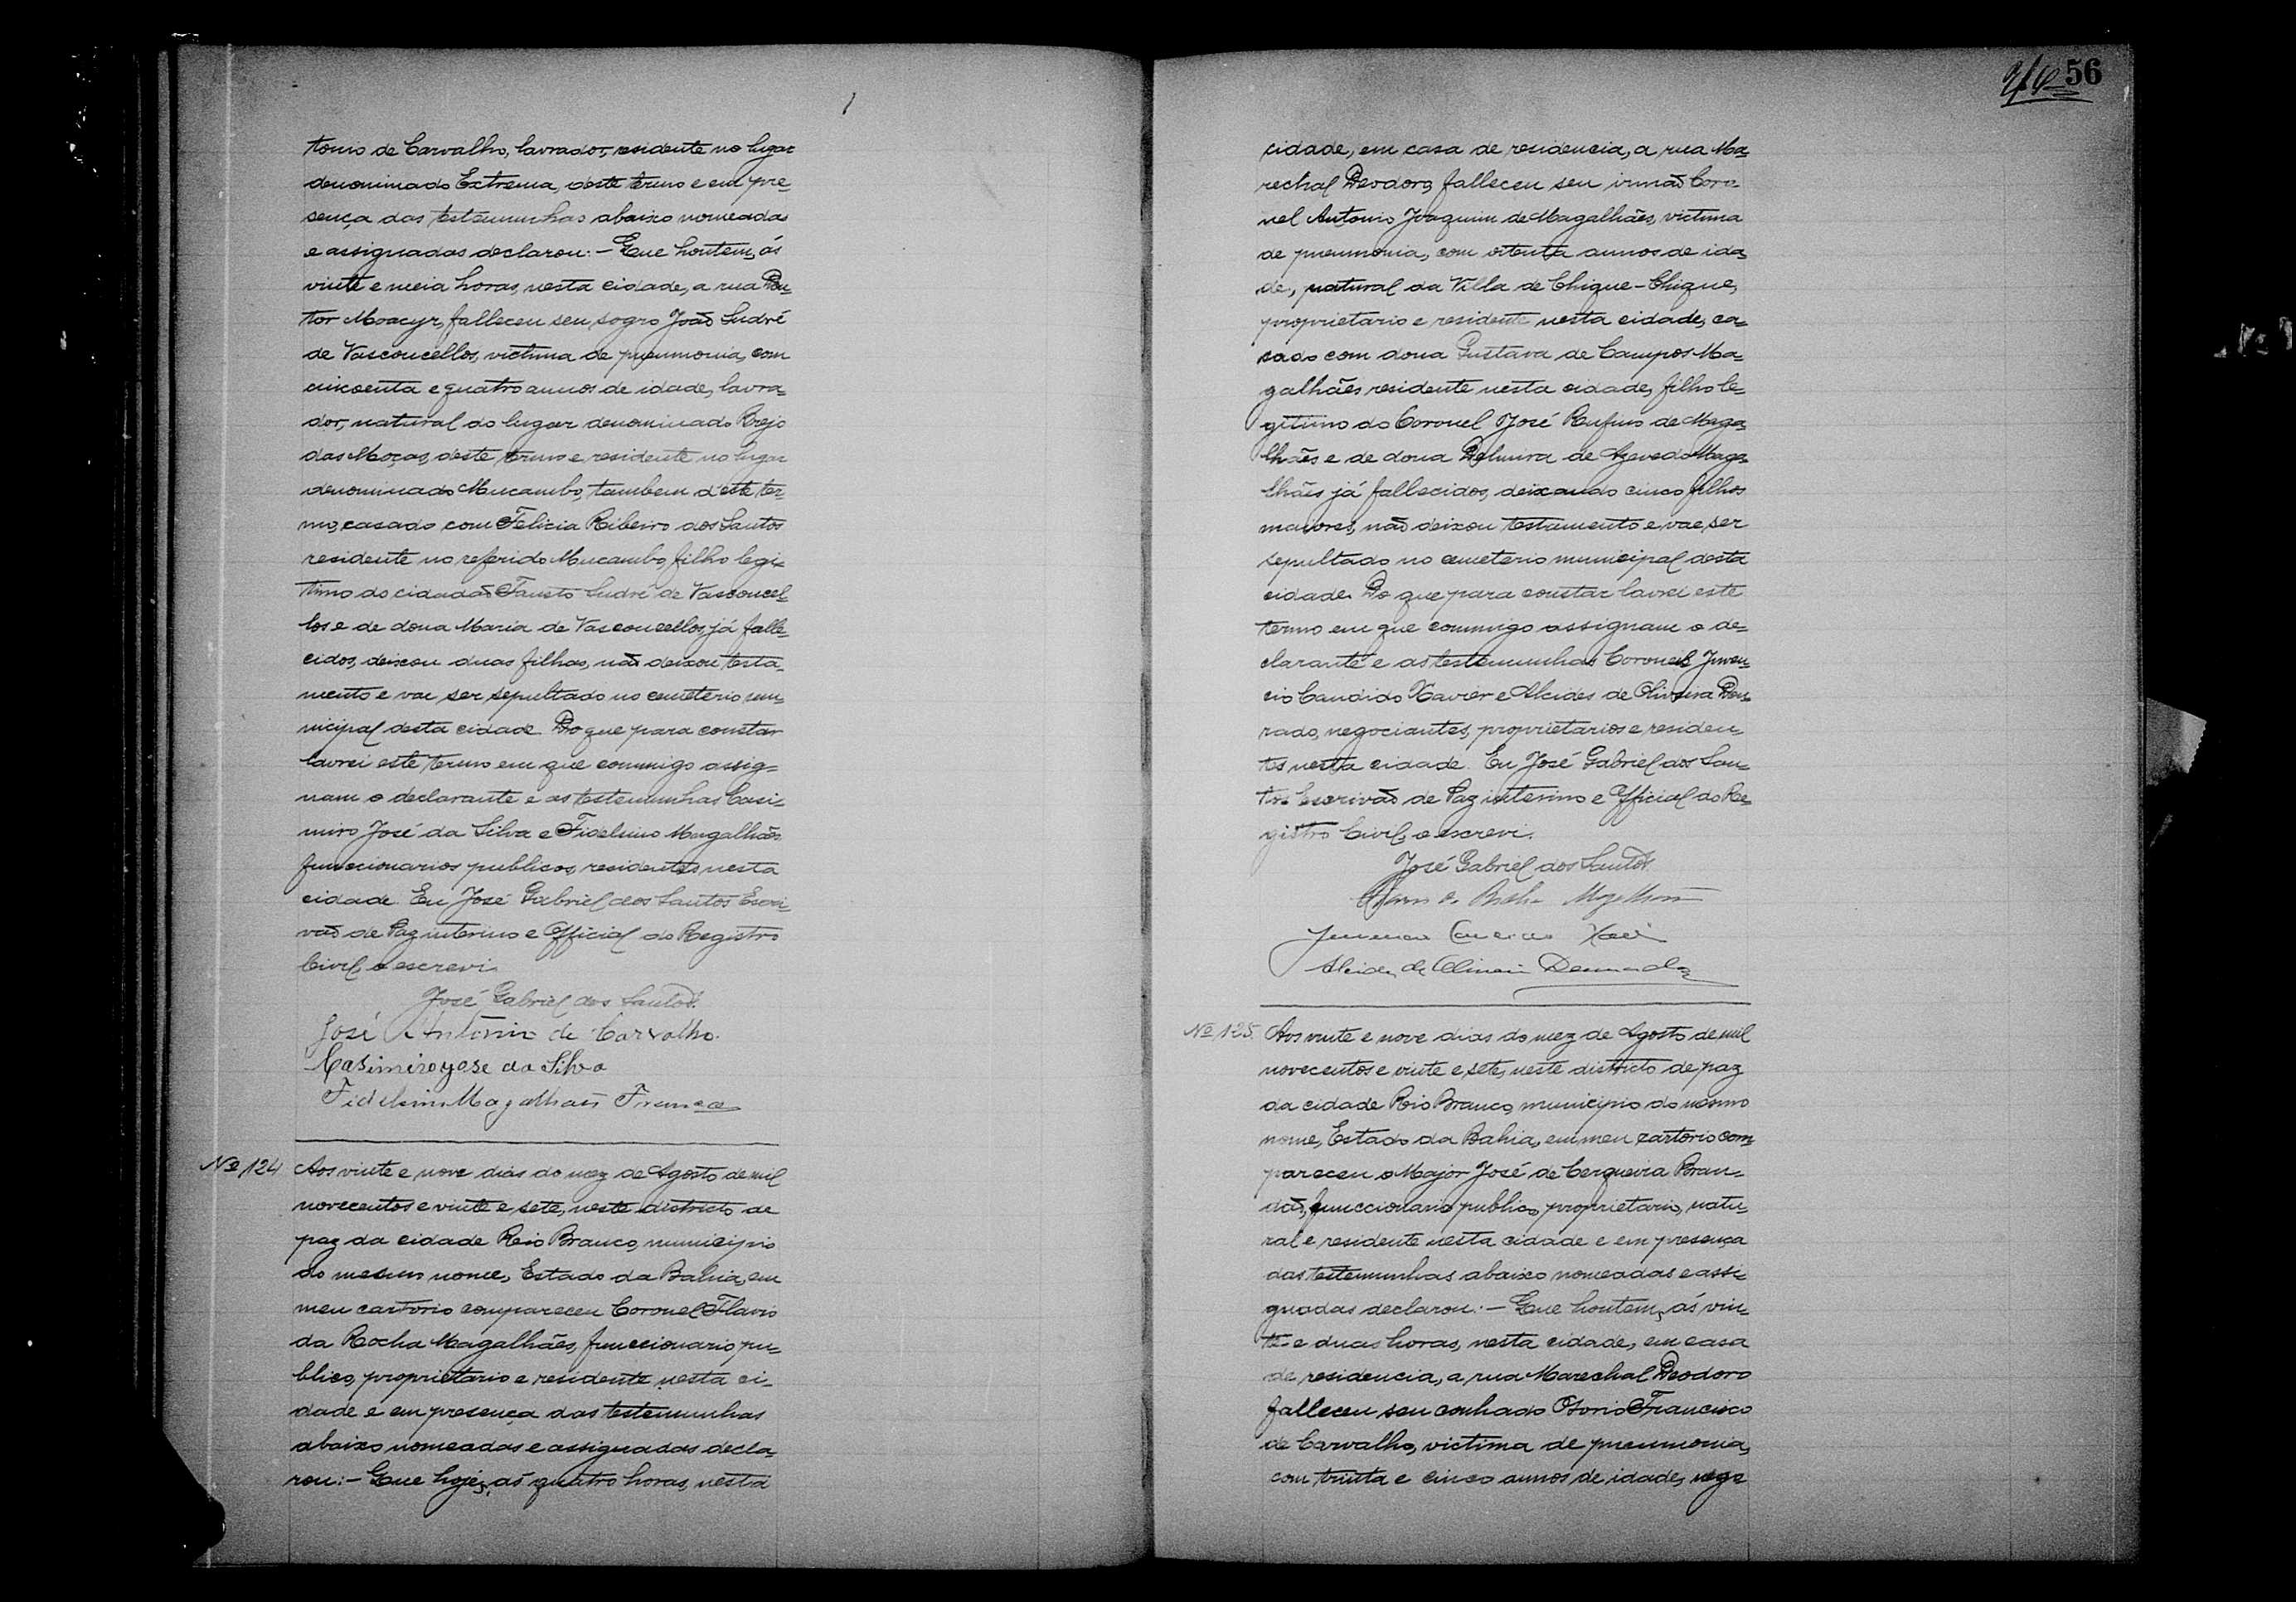 tonio de Carvalho, lavrador, residente no lugar
denominado Extrema, deste termo e em pre-
sença das testemunhas abaixo nomeadas
e assignadas declarou: - Que hontem, ás
vinte e meia horas, nesta cidade, a rua Dou-
tor Moacyr, falleceu seu sogro João Sudré
de Vasconcellos, victima de pneumonia, com
cincoenta e quatro annos de idade, lavra-
dor, natural do lugar denominado Brejo
das Moças, deste termo e residente no lugar
denominado Mucambo, tambem d'este ter-
mo, casado com Felicia Ribeiro dos Santos
residente no referido Mucambo, filho legi-
timo do cidadão Fausto Sudré de Vasconcel-
los e de dona Maria de Vasconcellos, já falle-
cidos, deixou duas filhas, não deixou testa-
mento e vae ser sepultado no cemeterio mu-
nicipal desta cidade. Do que para constar
lavrei este termo em que commigo assig-
nam o declarante e as testemunhas Casi-
miro José da Silva e Fidelsino Magalhães
funccionarios publicos, residentes nesta
cidade. Eu José Gabriel dos Santos Escri-
vão de Paz interino e Official do Registro
Civil, o escrevi.
José Gabriel dos Santos.
José Antonio de Carvalho.
Casimiro yose da Silva
Magalhães França
Nº 124 Aos vinte e nove dias do mez de Agosto de mil
novecentos e vinte e sete, neste districto de
paz da cidade Rio Branco, municipio
do mesmo nome, Estado da Bahia, em
meu cartorio compareceu Coronel Flavio
da Rocha Magalhães, funccionario pu-
blico, proprietario e residente nesta ci-
dade e em presença das testemunhas
abaixo nomeadas e assignadas decla-
rou: - Que hoje, ás quatro horas, nesta
56
cidade, em casa de residencia, a rua Ma-
rechal Deodoro, falleceu seu irmão Coro-
nel Antonio Joaquim de Magalhães, victima
de pneumonia, com oitenta annos de ida-
de, natural da Villa de Chique-Chique,
proprietario e residente nesta cidade, ca-
sado com dona Gustava de Campos Ma-
galhães residente nesta cidade, filho le-
gitimo do Coronel José Rufino de Maga-
lhães e de dona Delmira de Azevedo Maga-
lhães já fallecidos, deixando cinco filhos
maiores, não deixou testamento e vae ser
sepultado no cemeterio municipal desta
cidade. Do que para constar lavrei este
termo em que commigo assignam o de-
clarante e as testemunhas Coronel Juven-
cio Candido Xavier e Alcides de Oliveira Dou-
rado, negociantes, proprietarios e residen-
tes nesta cidade. Eu José Gabriel dos San-
tos Escrivão de Paz interino e Official do Re-
gistro Civil, o escrevi.
José Gabriel dos Santos.
Alcides de Oliveira Dourado
Nº 125. Aos vinte e nove dias do mez de Agosto de mil
novecentos e vinte e sete, neste districto de paz
da cidade Rio Branco, municipio do mesmo
nome, Estado da Bahia, em meu cartorio com-
pareceu o Major José de Cerqueira Bran-
dão, funccionario publico, proprietario, natu-
ral e residente nesta cidade e em presença
das testemunhas abaixo nomeadas e assi-
gnadas declarou: - Que hontem, ás vin-
te e duas horas, nesta cidade, em casa
de residencia, a rua Marechal Deodoro
falleceu seu cunhado Osorio Francisco
de Carvalho, victima de pneumonia,
com trinta e cinco annos de idade, nego